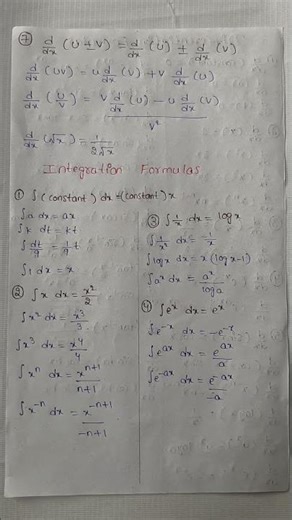 ⑦ d/dx (U+V) = d/dx (U) + d/dx (V)
d/dx (UV) = U d/dx (V) + V d/dx (U)
d/dx (U/V) = V d/dx (U) - U d/dx (V) / V²
d/dx (√x) = 1/2√x
Integration Formulas
① ∫(constant) dx = (constant) x
∫a dx = ax
∫k dt = kt
∫1 dx = x
② ∫x dx = x²/2
∫x² dx = x³/3
∫x³ dx = x⁴/4
∫xⁿ dx = xⁿ⁺¹/n+1
∫x⁻ⁿ dx = x⁻ⁿ⁺¹/-n+1
③ ∫1/x dx = log x
∫1/x² dx = -1/x
∫log x dx = x (log x-1)
∫aˣ dx = aˣ/log a
④ ∫eˣ dx = eˣ
∫e⁻ˣ dx = -e⁻ˣ
∫eᵃˣ dx = eᵃˣ/a
∫e⁻ᵃˣ dx = e⁻ᵃˣ/-a